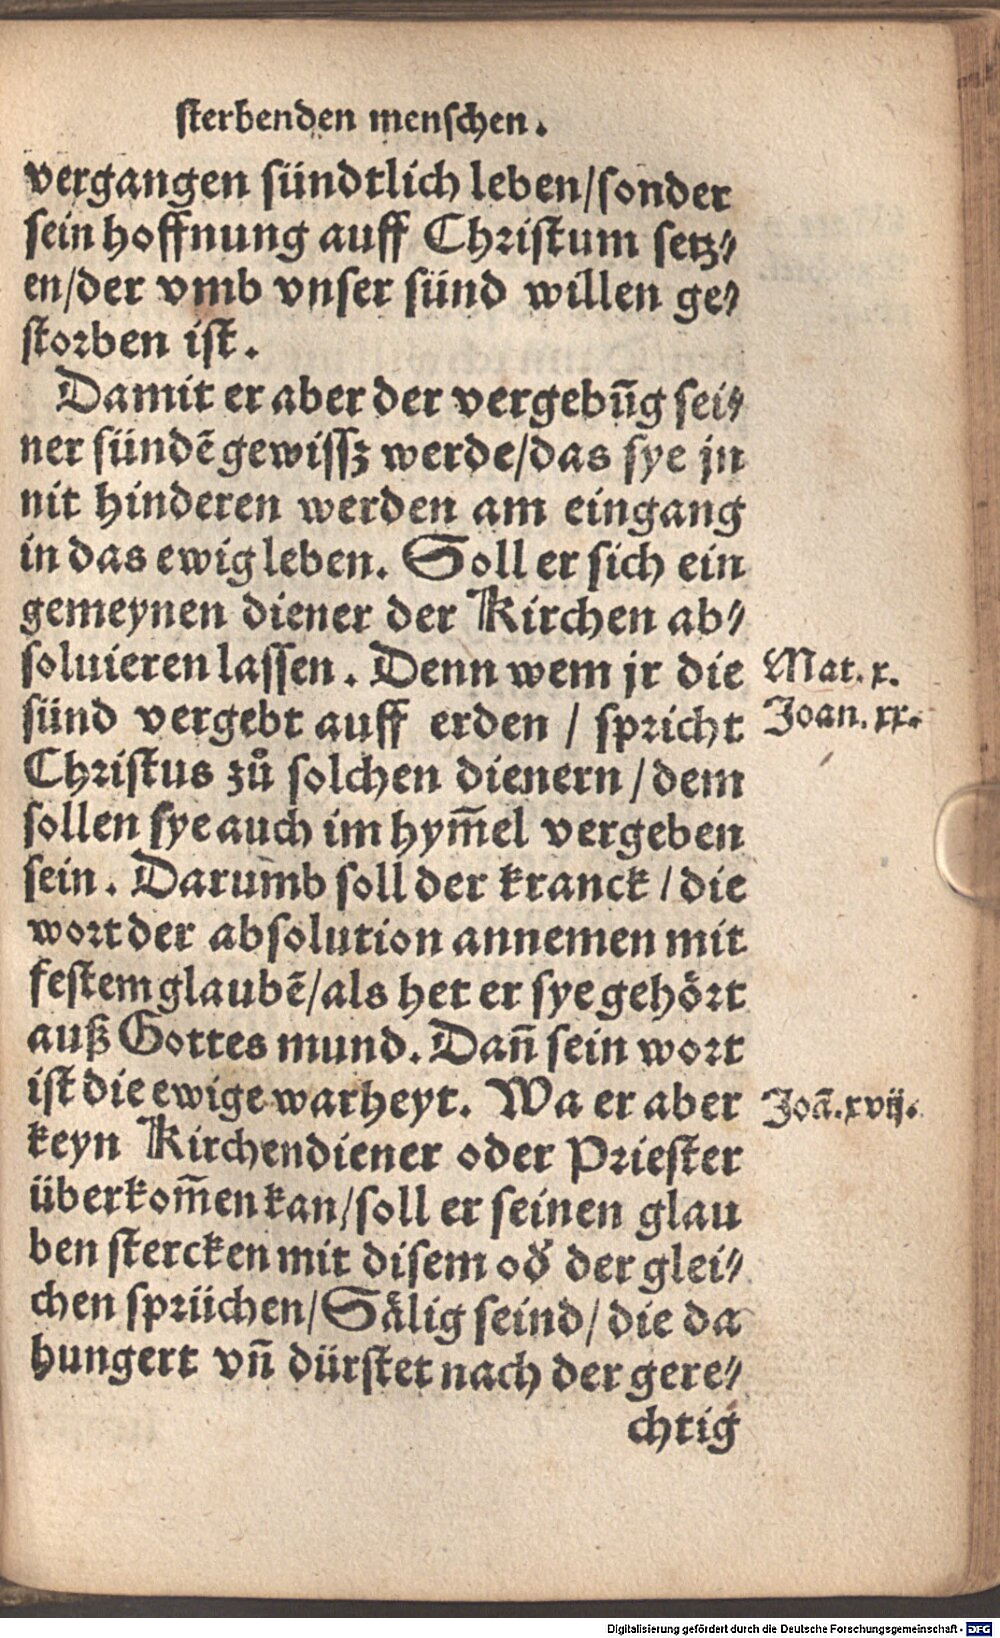 sterbenden menschen.
vergangen sündtlich leben/sonder
sein hoffnung auff Christum setz⸗
en/der vmb vnser sünd willen ge⸗
storben ist.
Damit er aber der vergebūg sei⸗
ner sündē gewissz werde/das sye jn
nit hinderen werden am eingang
in das ewig leben. Soll er sich ein
gemeynen diener der Kirchen ab⸗
soluieren lassen. Denn wem jr die
Mat. x.
sünd vergebt auff erden / spricht
Joan. xx.
Christus zů solchen dienern / dem
sollen sye auch im hym̄el vergeben
sein. Darum̄b soll der kranck / die
wort der absolution annemen mit
festem glaubē/als het er sye gehört
auß Gottes mund. Dan̄ sein wort
ist die ewige warheyt. Wa er aber
Joā. xvij.
keyn Kirchendiener oder Priester
überkom̄en kan/soll er seinen glau
ben stercken mit disem od̛ der glei⸗
chen sprüchen/Sälig seind/die da
hungert vn̄ dürstet nach der gere⸗
chtig
Digitalisierung gefördert durch die Deutsche Forschungsgemeinschaft - DFG